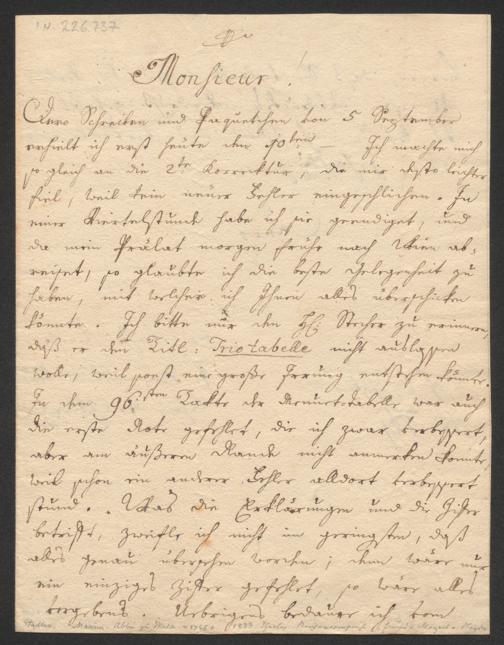 I.N. 226.737
Monsieur.
Dero Schreiben und Paquetchen von 5 September
erhielt ich erst heute den 10ten Ich machte mich
so gleich an die 2te Korrektur, die mir desto leichter
fiel, weil kein neuer Fehler eingeschlichen. In
einer Viertelstunde habe ich sie geendiget, und
da mein Prälat morgen frühe nach Wien ab-
reiset, so glaubte ich die beste Gelegenheit zu
haben, mit welcher ich Ihnen alles überschicken
könnte. Ich bitte nur den H: Stecher zu erinnern,
daß er den Titl: Triotabelle nicht auslassen
wolle, weil sonst eine große Irrung entstehen könnte.
In dem 96sten Takte der Menuetstabelle war auch
die erste Note gefehlet, die ich zwar verbessert,
aber am äußeren Rande nicht anmerken konnte,
weil schon ein anderer Fehler alldort verbessert
stund. Was die Erklärungen und die Zifer
betrifft, zweifle ich nicht im geringsten, daß
alles genau übersehen worden; denn wäre nur
ein einziges Ziffer gefehlet, so wäre alles
vergebens. Uebrigens bedaure ich vom
Stadler, Maxim. Abbé